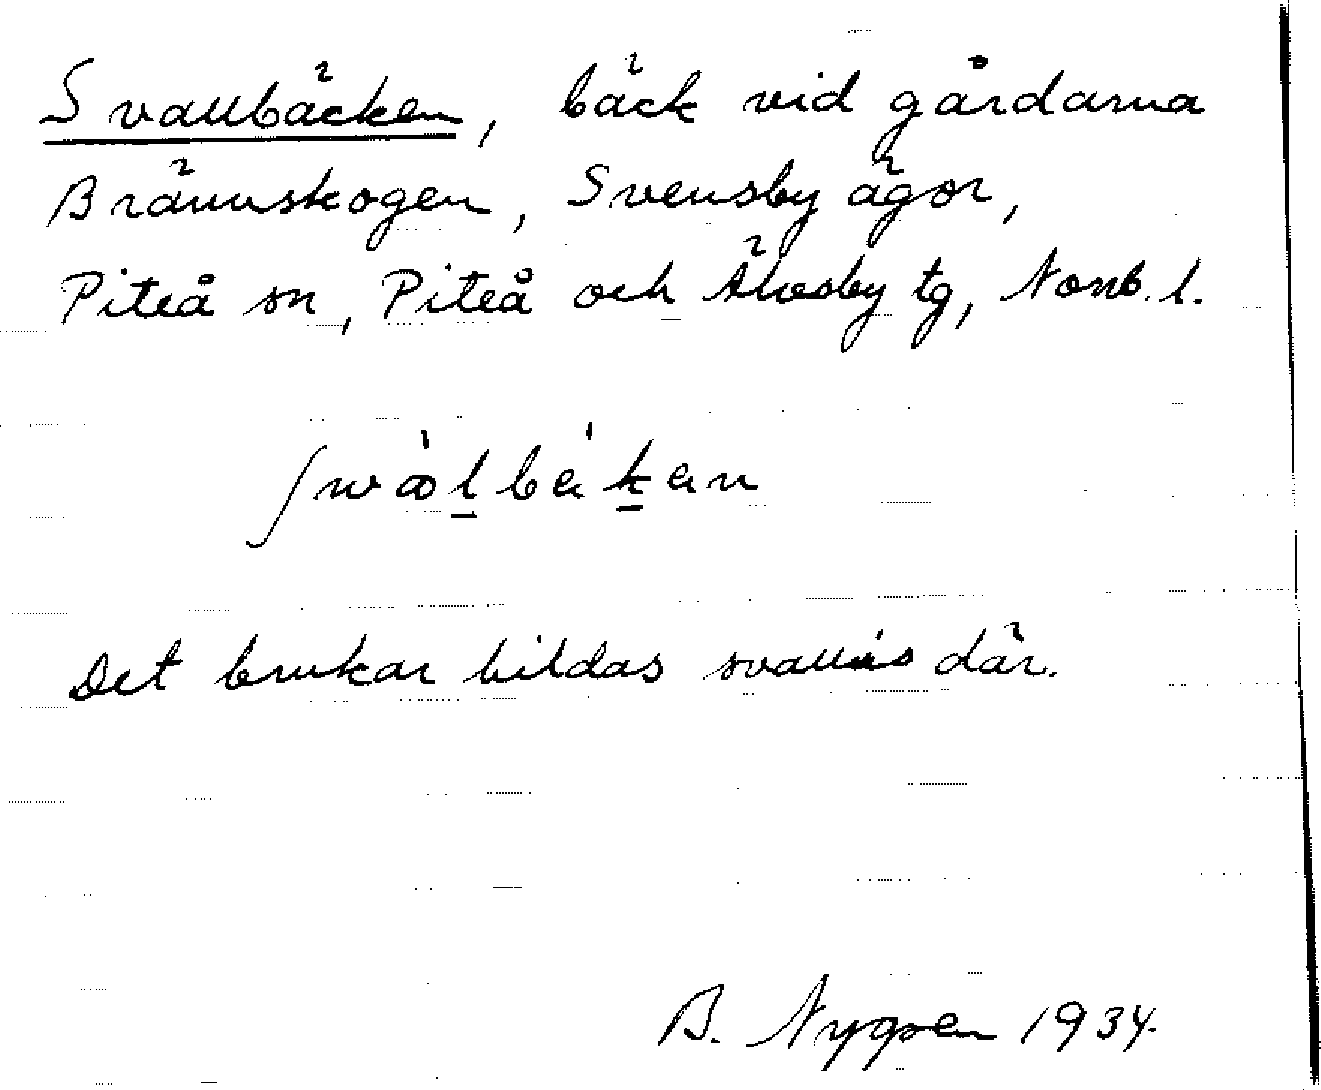 Svallbäcken, bäck vid gårdarna
Brännskogen, Svensby ägor,
Piteå sn, Piteå och Älvsby tg, Norrb. l.
Det brukar bildas svallis där.
B. Nygren 1934.